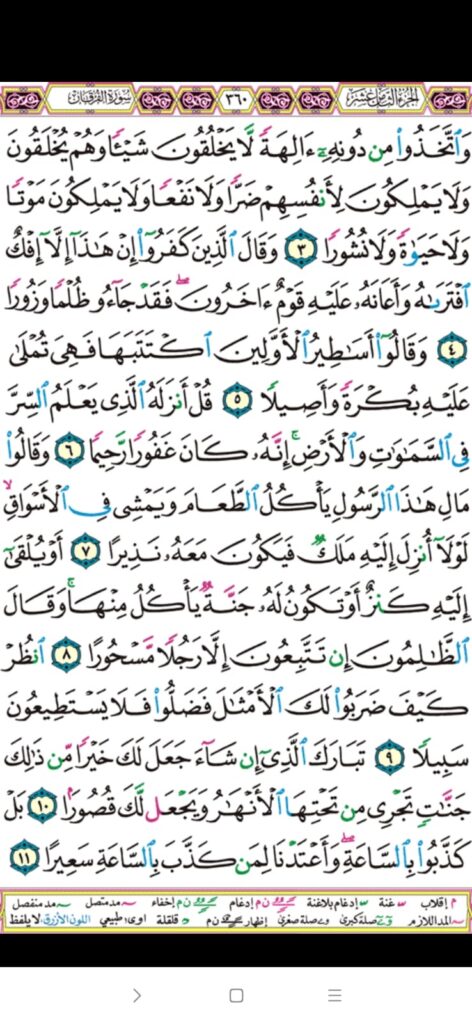 الجزء الثامن عشر ٣٦٠ سورة الفرقان
وَٱتَّخَذُوا۟ مِن دُونِهِۦٓ ءَالِهَةً لَّا يَخْلُقُونَ شَيْـًٔا وَهُمْ يُخْلَقُونَ
وَلَا يَمْلِكُونَ لِأَنفُسِهِمْ ضَرًّا وَلَا نَفْعًا وَلَا يَمْلِكُونَ مَوْتًا
وَلَا حَيَوٰةً وَلَا نُشُورًا ٣ وَقَالَ ٱلَّذِينَ كَفَرُوٓا۟ إِنْ هَـٰذَآ إِلَّآ إِفْكٌ
ٱفْتَرَىٰهُ وَأَعَانَهُۥ عَلَيْهِ قَوْمٌ ءَاخَرُونَ ۖ فَقَدْ جَآءُو ظُلْمًا وَزُورًا
٤ وَقَالُوٓا۟ أَسَـٰطِيرُ ٱلْأَوَّلِينَ ٱكْتَتَبَهَا فَهِىَ تُمْلَىٰ
عَلَيْهِ بُكْرَةً وَأَصِيلًا ٥ قُلْ أَنزَلَهُ ٱلَّذِى يَعْلَمُ ٱلسِّرَّ
فِى ٱلسَّمَـٰوَٰتِ وَٱلْأَرْضِ ۚ إِنَّهُۥ كَانَ غَفُورًا رَّحِيمًا ٦ وَقَالُوا۟
مَالِ هَـٰذَا ٱلرَّسُولِ يَأْكُلُ ٱلطَّعَامَ وَيَمْشِى فِى ٱلْأَسْوَاقِ ۙ
لَوْلَآ أُنزِلَ إِلَيْهِ مَلَكٌ فَيَكُونَ مَعَهُۥ نَذِيرًا ٧ أَوْ يُلْقَىٰٓ
إِلَيْهِ كَنزٌ أَوْ تَكُونُ لَهُۥ جَنَّةٌ يَأْكُلُ مِنْهَا ۚ وَقَالَ
ٱلظَّـٰلِمُونَ إِن تَتَّبِعُونَ إِلَّا رَجُلًا مَّسْحُورًا ٨ ٱنظُرْ
كَيْفَ ضَرَبُوا۟ لَكَ ٱلْأَمْثَـٰلَ فَضَلُّوا۟ فَلَا يَسْتَطِيعُونَ
سَبِيلًا ٩ تَبَارَكَ ٱلَّذِىٓ إِن شَآءَ جَعَلَ لَكَ خَيْرًا مِّن ذَٰلِكَ
جَنَّـٰتٍ تَجْرِى مِن تَحْتِهَا ٱلْأَنْهَـٰرُ وَيَجْعَل لَّكَ قُصُورًۢا ١٠ بَلْ
كَذَّبُوا۟ بِٱلسَّاعَةِ ۖ وَأَعْتَدْنَا لِمَن كَذَّبَ بِٱلسَّاعَةِ سَعِيرًا ١١
م إقلاب غنة إدغام بلاغنة ن م إدغام ن م إخفاء مد متصل مد منفصل
المد اللازم صلة كبرى صلة صغرى إظهار ن م قلقلة اوى طبيعي اللون الأزرق لا يلفظ